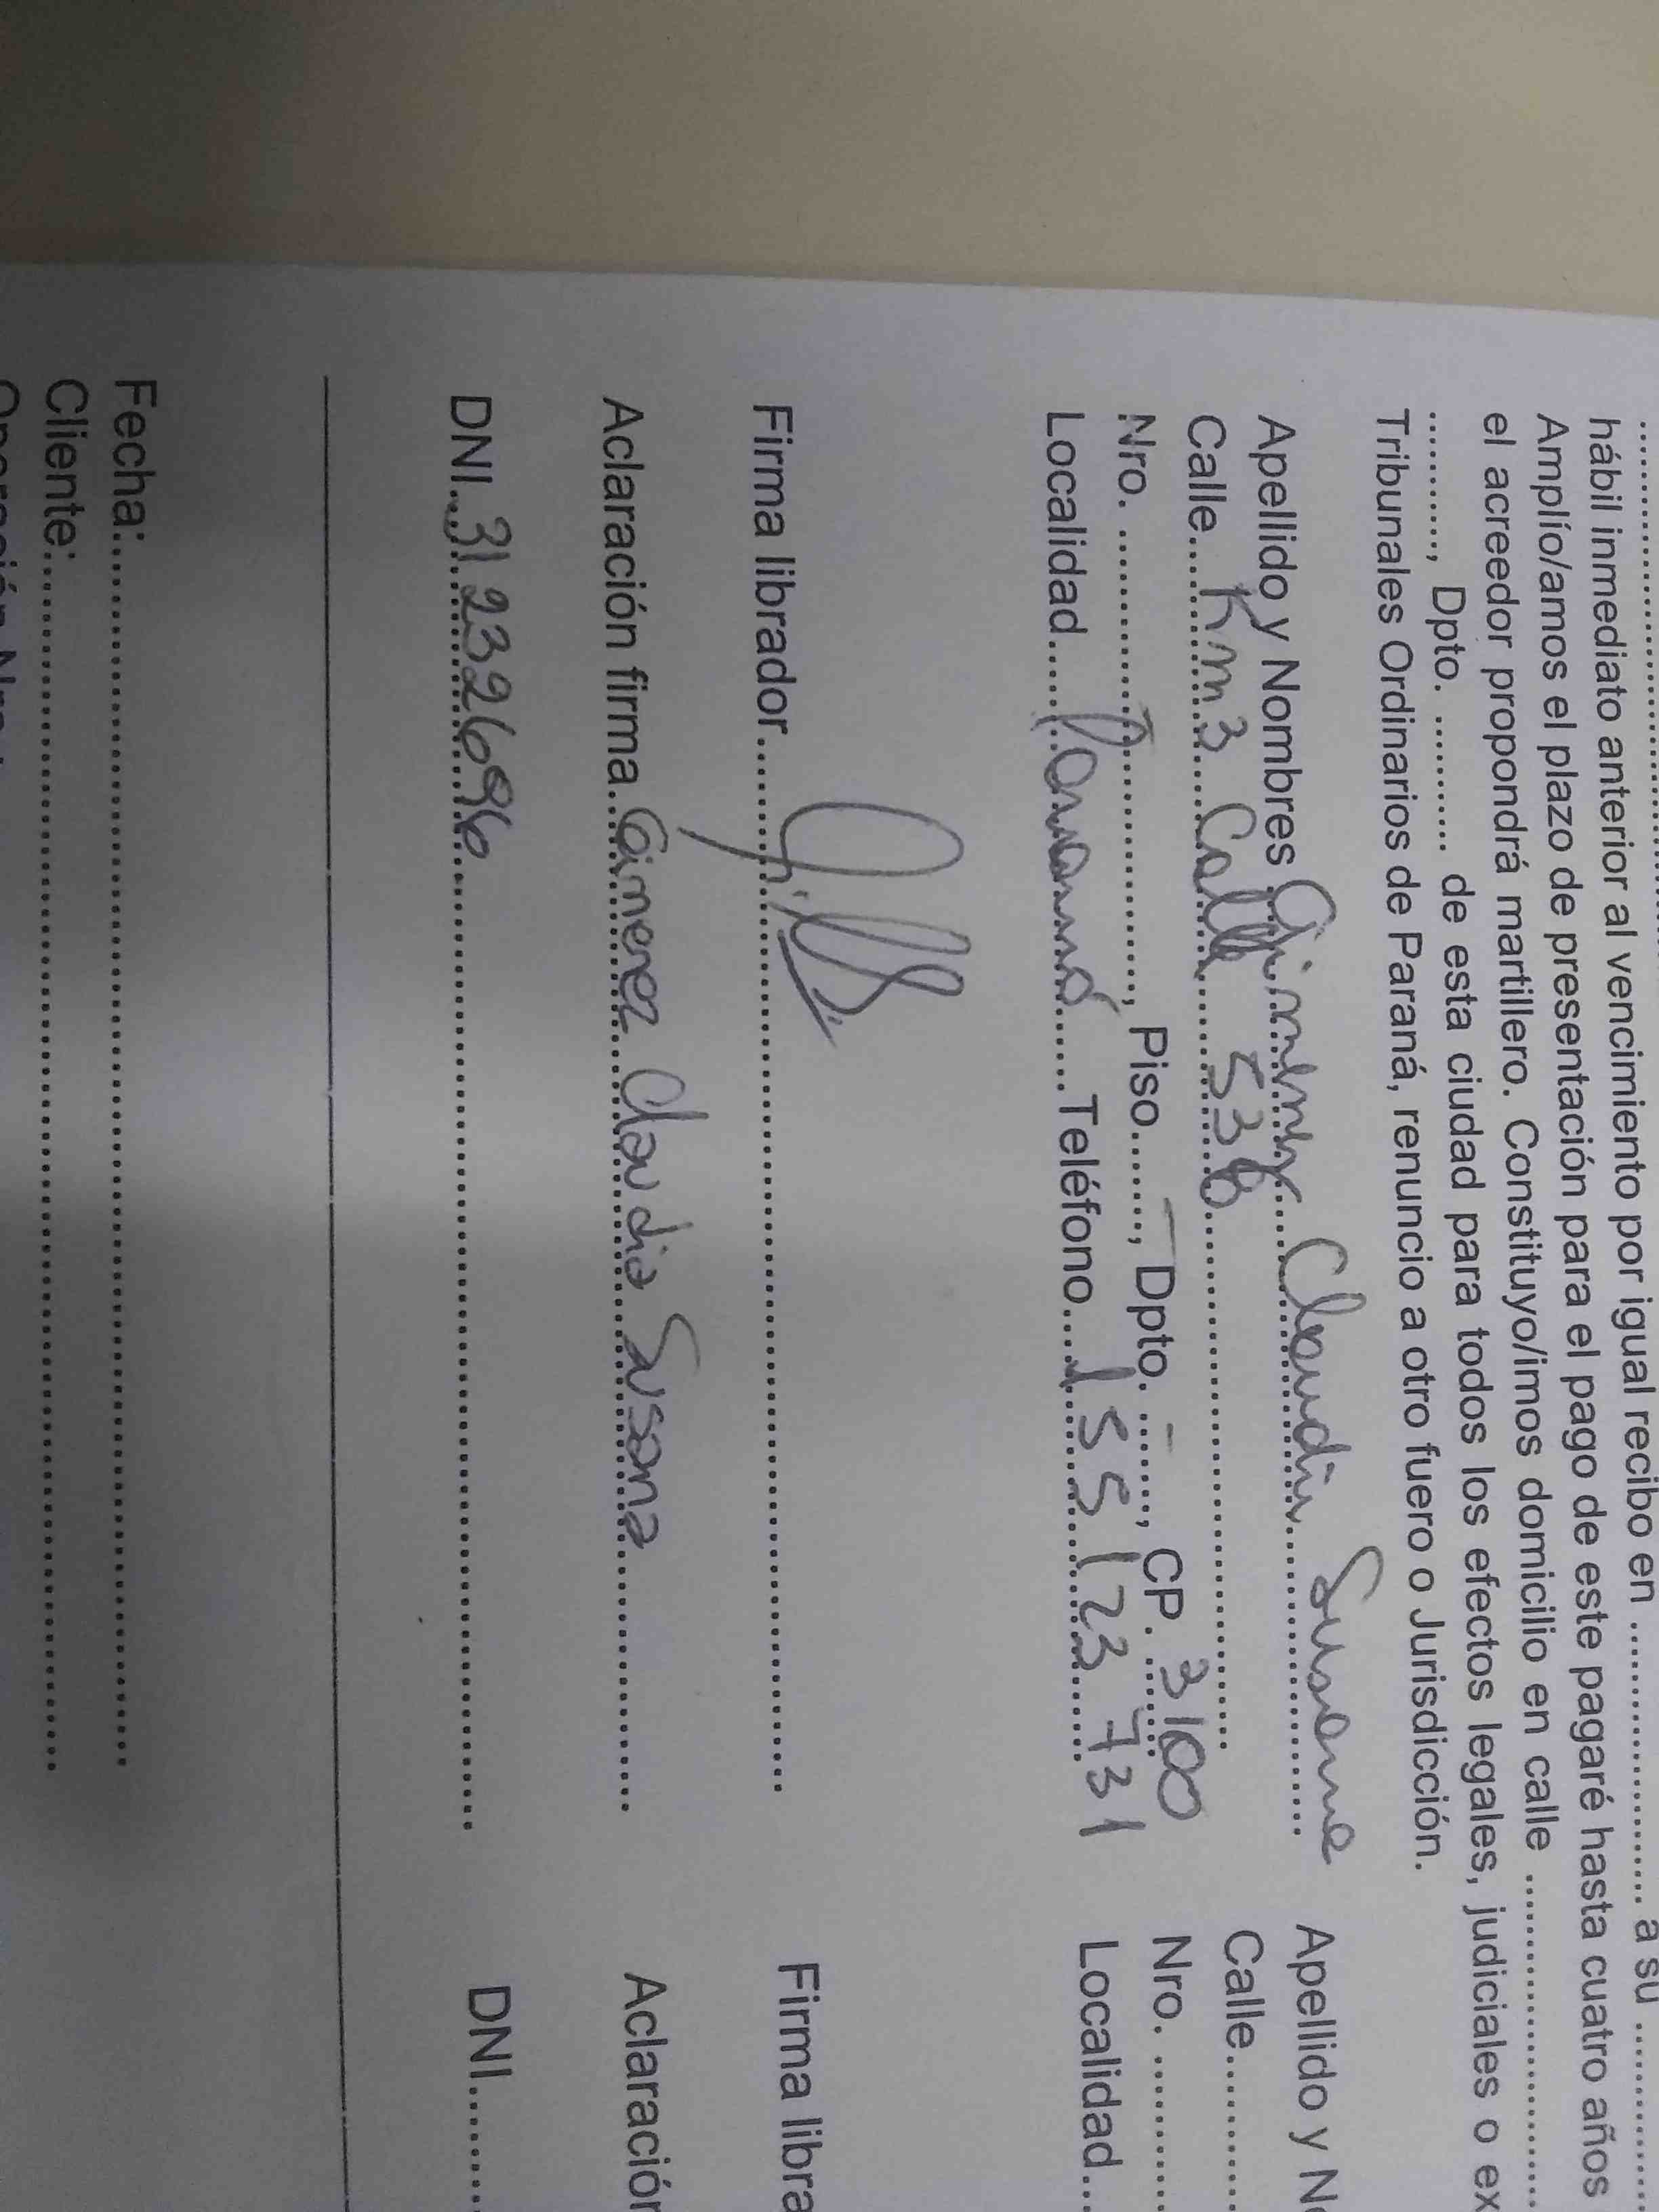 ............................ hábil inmediato anterior al vencimiento por igual recibo en ........................ a su ................
Amplío/amos el plazo de presentación para el pago de este pagaré hasta cuatro años
el acreedor propondrá martillero. Constituyo/imos domicilio en calle ............................
.........., Dpto. .......... de esta ciudad para todos los efectos legales, judiciales o ex
Tribunales Ordinarios de Paraná, renuncio a otro fuero o Jurisdicción.
Apellido y Nombres Gimenez Claudia Susana Apellido y N
Calle Km3 Calle 538 Calle
Nro. - Piso - Dpto. - CP. 3100 Nro.
Localidad Paraná Teléfono 155123731 Localidad
Firma librador Firma libra
Aclaración firma Gimenez Claudia Susana Aclaración
DNI. 31232696 DNI
Fecha:
Cliente: